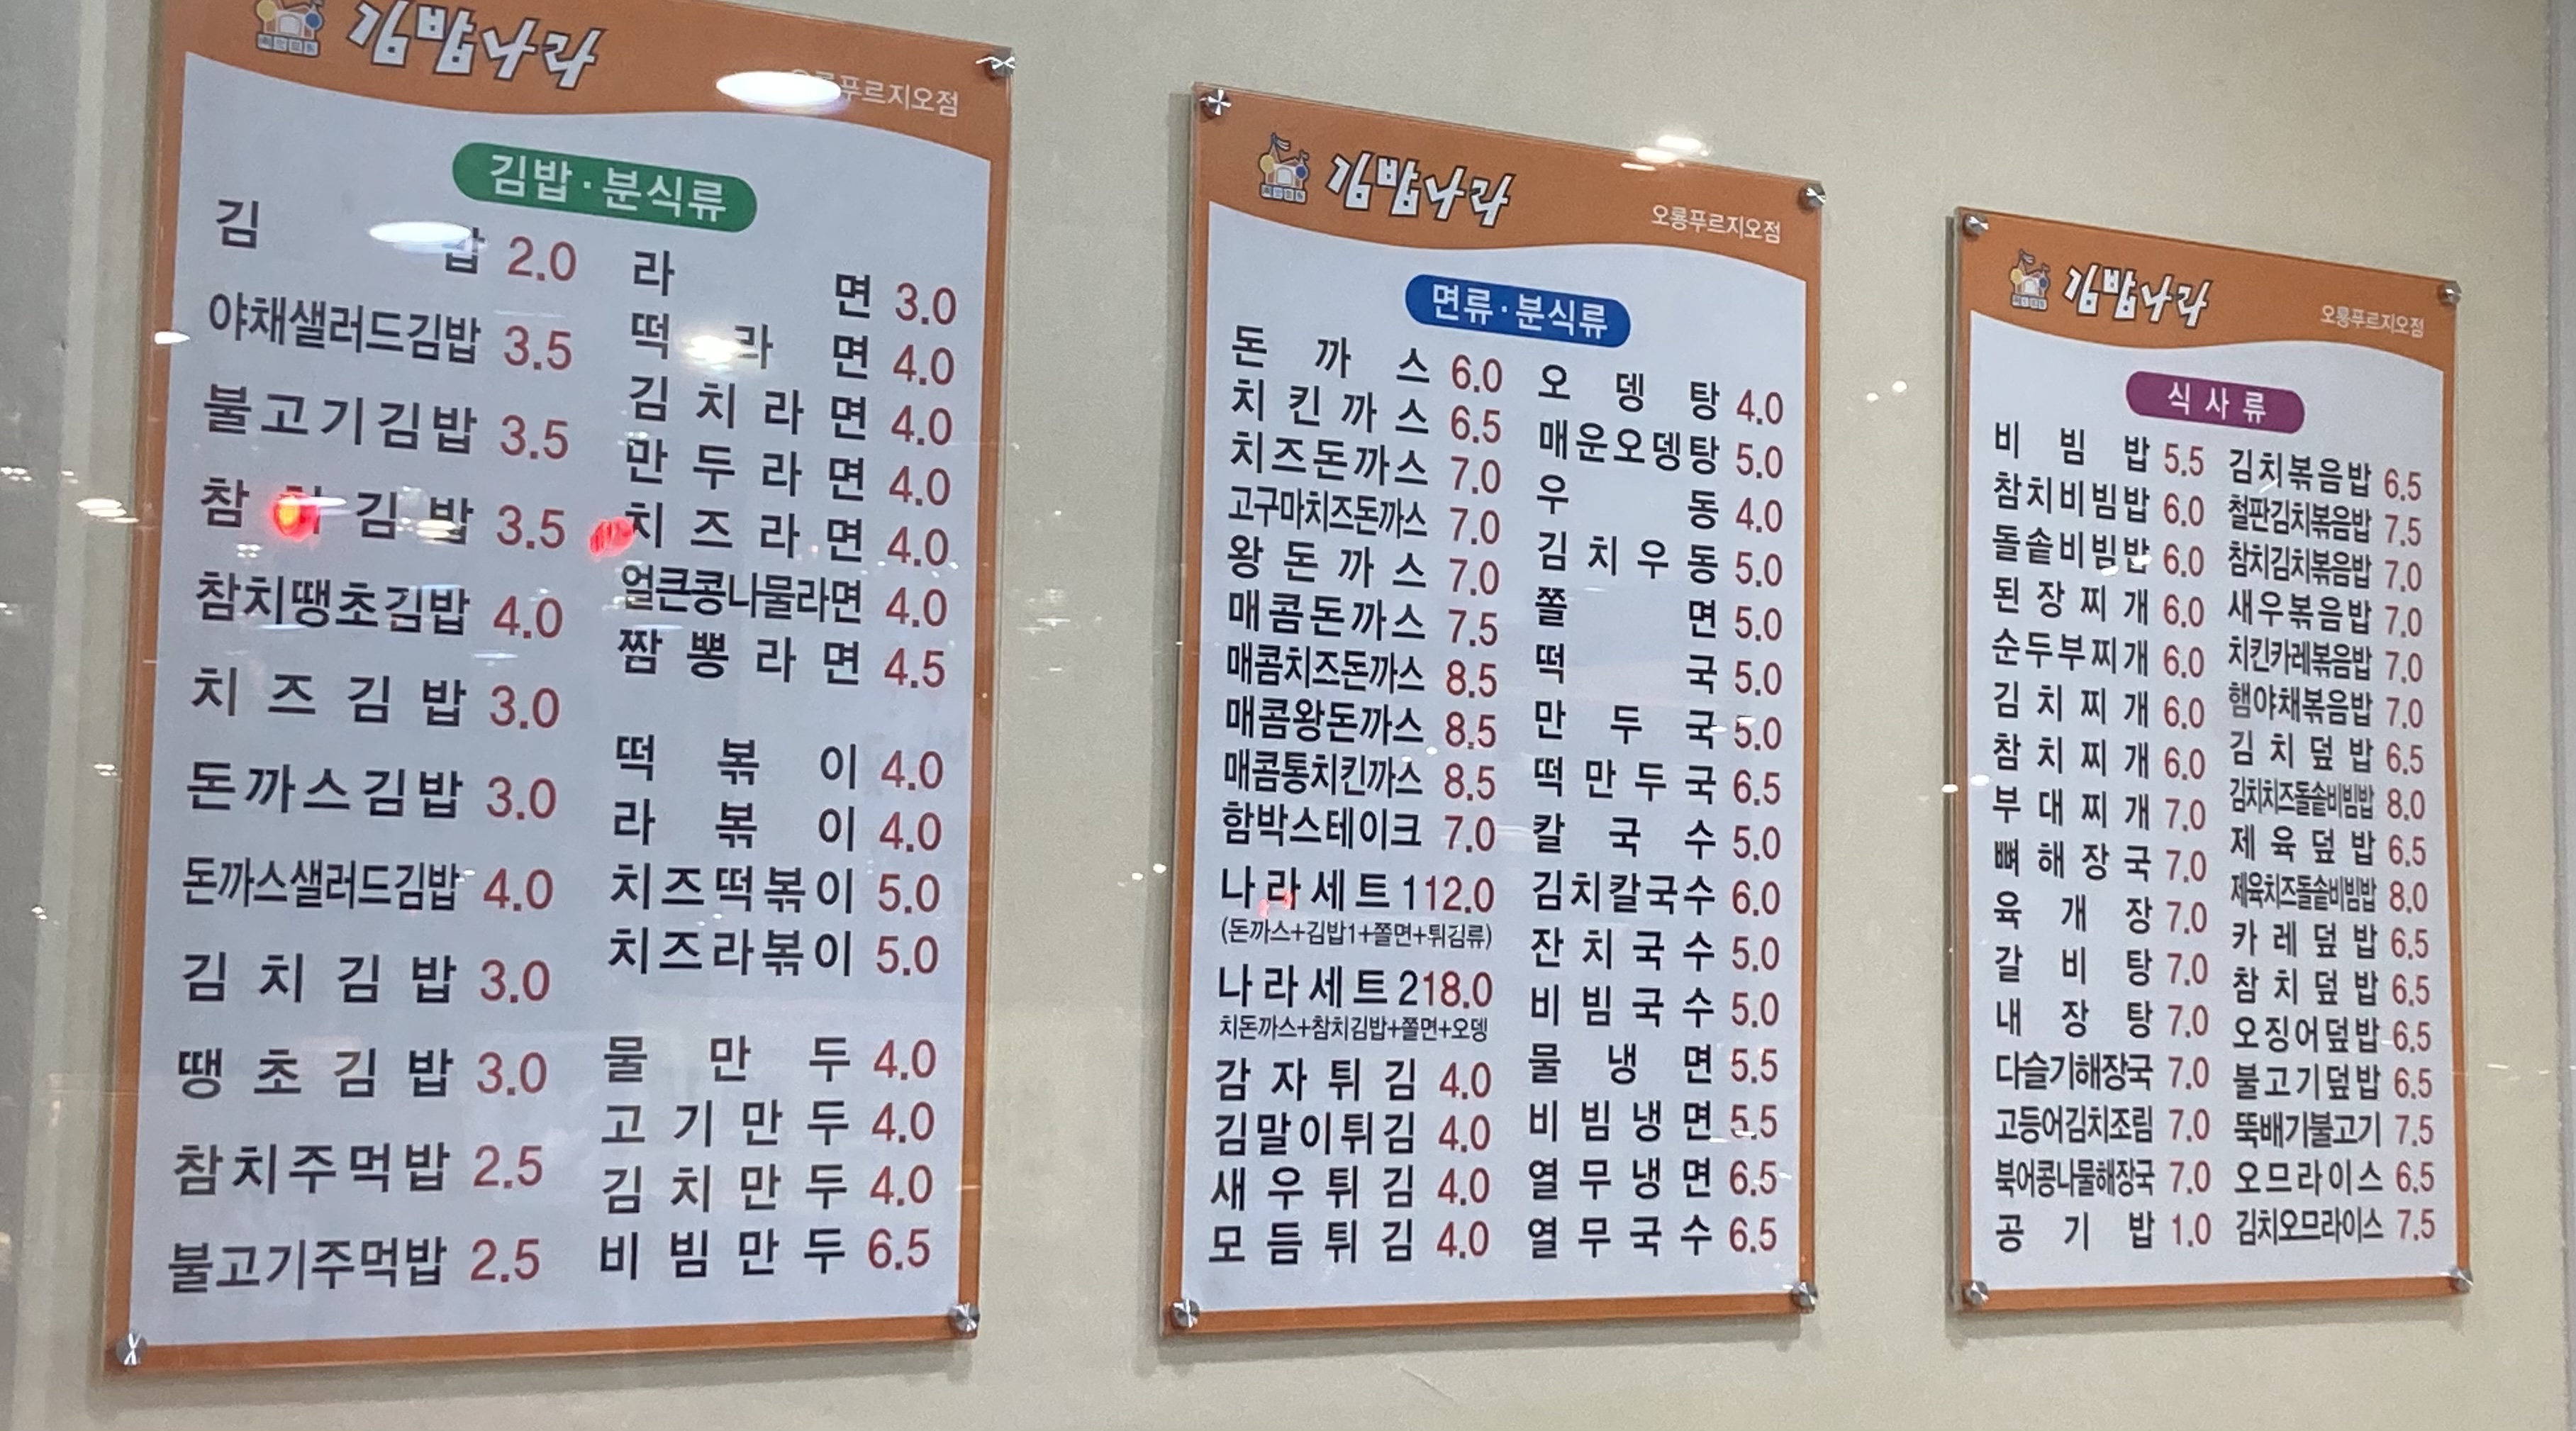 김밥나라
푸르지오점
김밥·분식류
김 밥 2.0
야채샐러드김밥 3.5
불고기김밥 3.5
참치김밥 3.5
참치땡초김밥 4.0
치즈김밥 3.0
돈까스김밥 3.0
돈까스샐러드김밥 4.0
김치김밥 3.0
땡초김밥 3.0
참치주먹밥 2.5
불고기주먹밥 2.5
라 면 3.0
떡 라 면 4.0
김치라면 4.0
만두라면 4.0
치즈라면 4.0
얼큰콩나물라면 4.0
짬뽕라면 4.5
떡 볶 이 4.0
라 볶 이 4.0
치즈떡볶이 5.0
치즈라볶이 5.0
물 만 두 4.0
고기만두 4.0
김치만두 4.0
비빔만두 6.5
김밥나라
오룡푸르지오점
면류·분식류
돈 까 스 6.0
치킨까스 6.5
치즈돈까스 7.0
고구마치즈돈까스 7.0
왕돈까스 7.0
매콤돈까스 7.5
매콤치즈돈까스 8.5
매콤왕돈까스 8.5
매콤통치킨까스 8.5
함박스테이크 7.0
나라세트1 12.0
(돈까스+김밥1+쫄면+튀김류)
나라세트2 18.0
치돈까스+참치김밥+쫄면+오뎅
감자튀김 4.0
김말이튀김 4.0
새우튀김 4.0
모듬튀김 4.0
오 뎅 탕 4.0
매운오뎅탕 5.0
우 동 4.0
김치우동 5.0
쫄 면 5.0
떡 국 5.0
만 두 국 5.0
떡만두국 6.5
칼 국 수 5.0
김치칼국수 6.0
잔치국수 5.0
비빔국수 5.0
물 냉 면 5.5
비빔냉면 5.5
열무냉면 6.5
열무국수 6.5
김밥나라
오룡푸르지오점
식사류
비 빔 밥 5.5
참치비빔밥 6.0
돌솥비빔밥 6.0
된장찌개 6.0
순두부찌개 6.0
김치찌개 6.0
참치찌개 6.0
부대찌개 7.0
뼈해장국 7.0
육 개 장 7.0
갈 비 탕 7.0
내 장 탕 7.0
다슬기해장국 7.0
고등어김치조림 7.0
북어콩나물해장국 7.0
공 기 밥 1.0
김치볶음밥 6.5
철판김치볶음밥 7.5
참치김치볶음밥 7.0
새우볶음밥 7.0
치킨카레볶음밥 7.0
햄야채볶음밥 7.0
김치덮밥 6.5
김치치즈돌솥비빔밥 8.0
제육덮밥 6.5
제육치즈돌솥비빔밥 8.0
카레덮밥 6.5
참치덮밥 6.5
오징어덮밥 6.5
불고기덮밥 6.5
뚝배기불고기 7.5
오므라이스 6.5
김치오므라이스 7.5